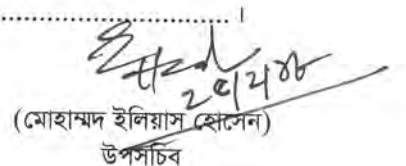 ........................................ ।
(মোহাম্মদ ইলিয়াস হোসেন)
উপসচিব